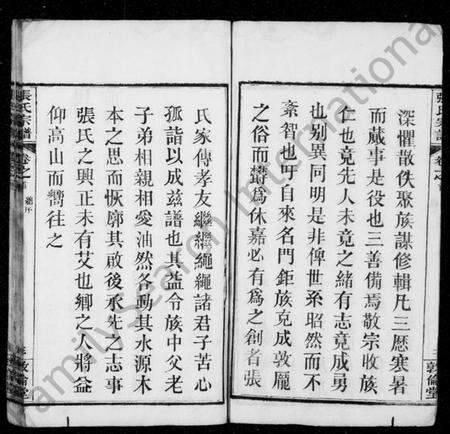 深懼散佚聚族謀修輯凡三歷寒暑
而蕆事是役也三善備焉敬宗收族
仁也竟先人未竟之緒有志竟成勇
也别異同明是非俾世系昭然而不
紊智也而自來名門鉅族克成敦龐
之俗而鬱爲休嘉必有爲之創者張
氏家傳孝友繼繼繩繩諸君子苦心
孤詣以成兹譜也其益令族中父老
子弟相親相愛油然各動其水源木
本之思而恢廓其啟後承先之志事
張氏之興正未有艾也鄉之人將益
仰高山而嚮往之
張氏宗譜 卷之
敦倫堂
張氏宗譜 卷之
敦倫堂
Family Search International